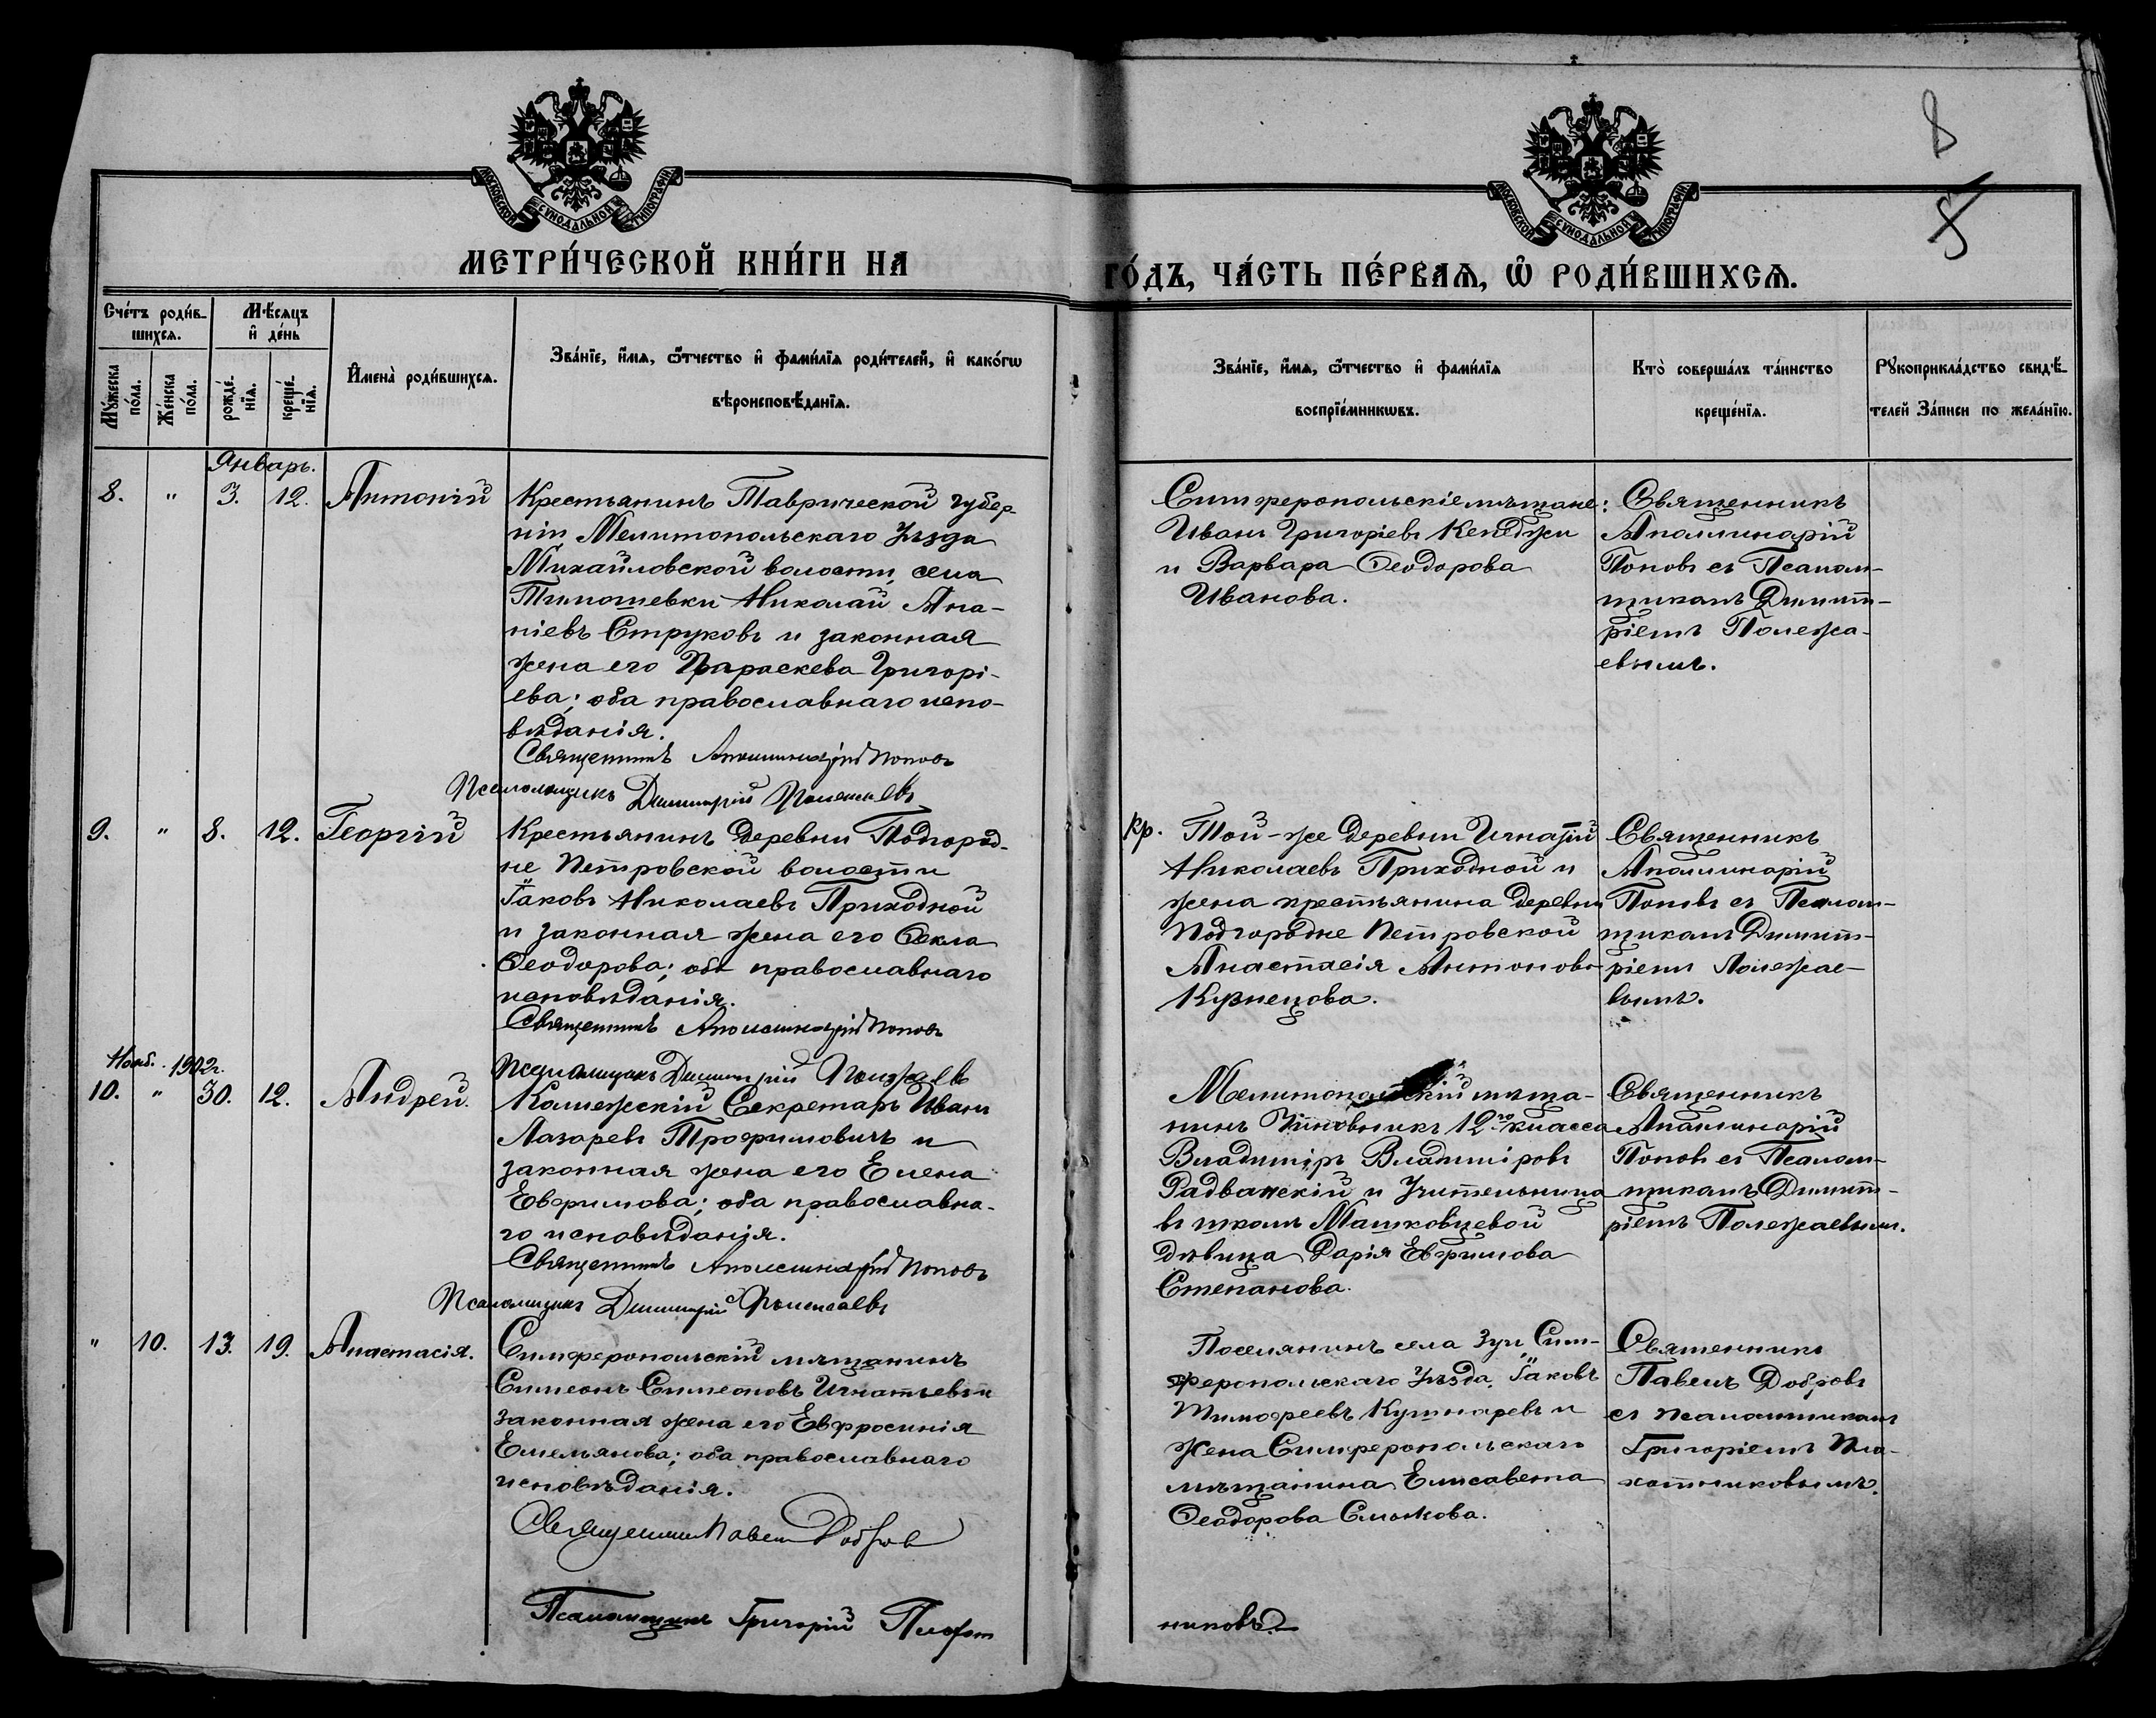 8
5
МОСКОВСКОЙ СѴНОДАЛЬНОЙ ТИПОГРАФІИ
МОСКОВСКОЙ СѴНОДАЛЬНОЙ ТИПОГРАФІИ
МЕТРИ́ЧЕСКОЙ КНИ́ГИ НА
ГО́ДЪ, ЧА́СТЬ ПЕ́РВАѦ, Ѿ РОДИ́ВШИХСѦ.
Сче́тъ роди́в-
шихсѧ.
Мѣ́сѧцъ
и҆ де́нь
Мꙋ́жеска
по́ла.
Же́нска
по́ла.
рожде́-
нїѧ.
креще́-
нїѧ.
И҆мена̀ роди́вшихсѧ.
Зва́нїе, и҆́мѧ, ѻ҆́тчество и҆ фами́лїѧ роди́телей, и҆ како́гѡ
вѣроисповѣ́данїѧ.
Зва́нїе, и҆́мѧ, ѻ҆́тчество и҆ фами́лїѧ
воспрїе́мникѡвъ.
Кто̀ соверша́лъ та́инство
креще́нїѧ.
Рꙋкоприкла́дство свидѣ́-
телей За́писи по жела́нїю.
Январь.
8. " 3. 12. Антоній
Крестьянинъ Таврической губер
ніи Мелитопольскаго Уѣзда
Михайловской волости, села
Тимошевки Николай Ана-
ніевъ Струковъ и законная
жена его Параскева Григорі-
ева; оба православнаго испо-
вѣданія.
Священникъ Аполлинарій Поповъ
Псаломщикъ Димитрій Полежаевъ
Симферопольскіе мѣщане:
Иванъ Григоріевъ Кенеджи
и Варвара Ѳеодорова
Иванова.
Священникъ
Аполлинарій
Поповъ съ Псалом-
щикомъ Димит-
ріемъ Полежа-
евымъ.
9. " 8. 12. Георгій
Крестьянинъ деревни Подгород-
не Петровской волости
Іаковъ Николаевъ Приходной
и законная жена его Ѳекла
Ѳеодорова; оба православнаго
исповѣданія.
Священникъ Аполлинарій Поповъ
Псаломщикъ Димитрій Полежаевъ
кр. Той-же деревни Игнатій
Николаевъ Приходной и
жена крестьянина деревни
Подгородне Петровской
Анастасія Антонова
Кузнецова.
Священникъ
Аполлинарій
Поповъ съ Псалом-
щикомъ Димит-
ріемъ Полежае-
вымъ.
Нояб. 1902г.
10. " 30. 12. Андрей.
Коллежскій Секретарь Иванъ
Лазаревъ Трофимовичъ и
законная жена его Елена
Евфимова; оба православна-
го исповѣданія.
Священникъ Аполлинарій Поповъ
Псаломщикъ Димитрій Полежаевъ
Мелитопольскій мѣща-
нинъ Чиновникъ 12го класса
Владиміръ Владиміровъ
Радванскій и Учительница
въ школѣ Машковцевой
дѣвица Дарія Евфимова
Степанова.
Священникъ
Аполлинарій
Поповъ съ Псалом-
щикомъ Димит-
ріемъ Полежаевымъ.
" 10. 13. 19. Анастасія.
Симферопольскій мѣщанинъ
Симеонъ Симеоновъ Игнатьевъ и
законная жена его Евфросинія
Емельянова; оба православнаго
исповѣданія.
Священникъ Павелъ Добровъ
Псаломщикъ Григорій Плохот
никовъ
Поселянинъ села Зуи, Сим-
феропольскаго Уѣзда, Іаковъ
Тимофеевъ Кушнаревъ и
жена Симферопольскаго
мѣщанина Елисавета
Ѳеодорова
Священникъ
Павелъ Добровъ
съ псаломщикомъ
Григоріемъ Пло-
хотниковымъ.